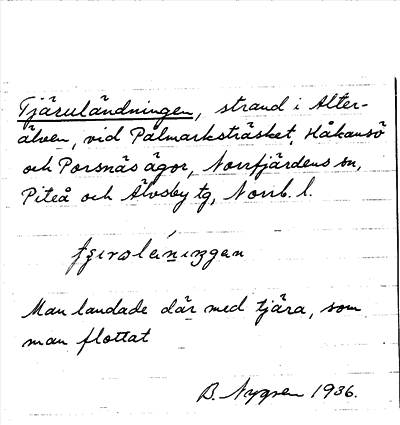 Tjäruländningen, strand i Alter-
älven, vid Palmarksträsket, Håkansö
och Porsnäs ägor, Norrfjärdens sn,
Piteå och Älvsby tg, Norrb. l.
Man landade där med tjära, som
man flottat
B. Nygren 1936.